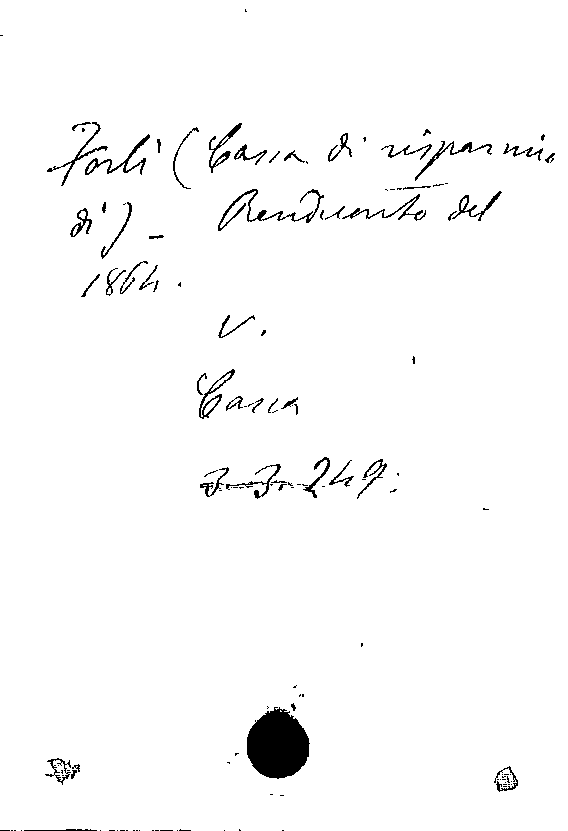 Forlì (Cassa di risparmio
di) - Rendiconto del
1864.
V.
Cassa
3. 3. 249.